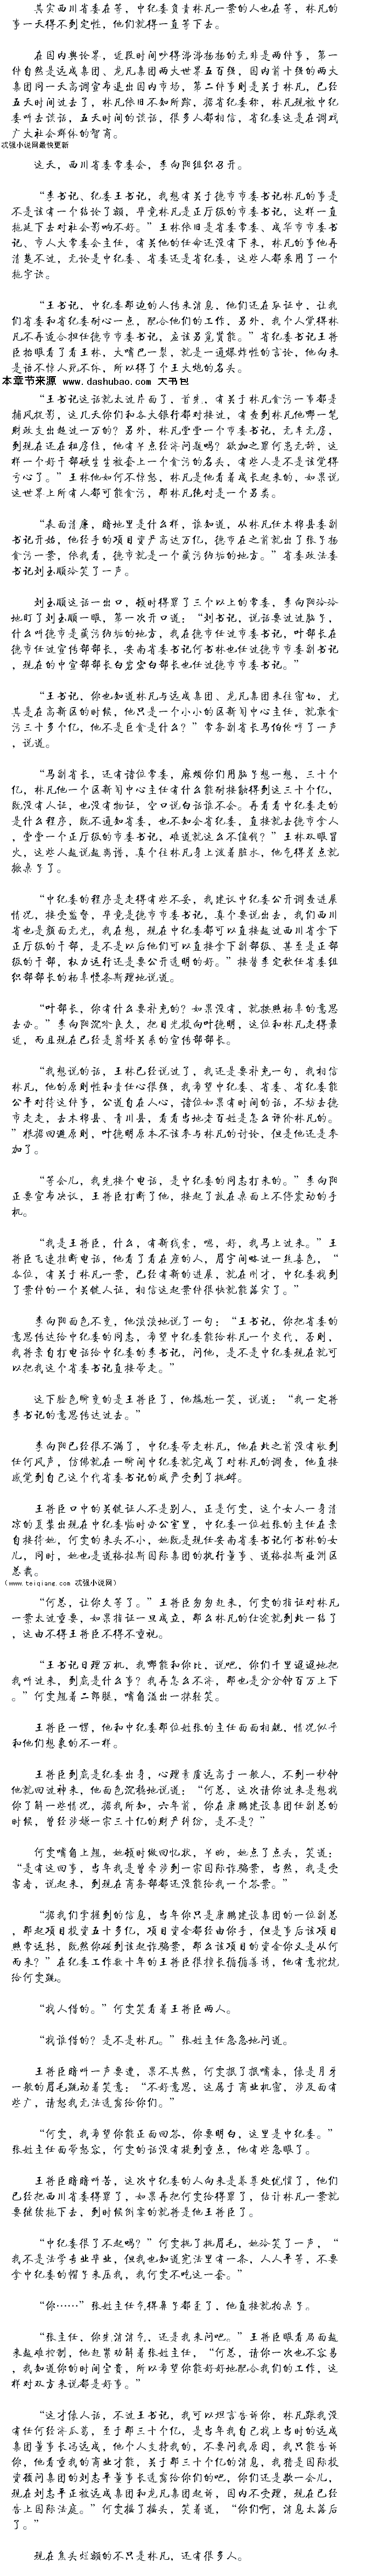 其实西川省委在等，中纪委负责林凡一案的人也在等，林凡的
事一天得不到定性，他们就得一直等下去。
在国内舆论界，近段时间吵得沸沸扬扬的无非是两件事，第一
件自然是远成集团、龙凡集团两大世界五百强，国内前十强的两大
集团同一天高调宣布退出国内市场，第二件事则是关于林凡，已经
五天时间过去了，林凡依旧不知所踪，据省纪委称，林凡现被中纪
委叫去谈话，五天时间的谈话，很多人都相信，省纪委这是在调戏
广大社会群体的智商。
忒强小说网最快更新
这天，西川省委常委会，李向阳组织召开。
“李书记、纪委王书记，我想有关于德市市委书记林凡的事是
不是该有一个结论了额，毕竟林凡是正厅级的市委书记，这样一直
拖延下去对社会影响不好。”王林依旧是省委常委、成华市市委书
记、市人大常委会主任，有关他的任命还没有下来，林凡的事他再
清楚不过，无论是中纪委、省委还是省纪委，这些人都采用了一个
拖字诀。
“王书记，中纪委那边的人传来消息，他们还在取证中，让我
们省委和省纪委耐心一点，配合他们的工作，另外，我个人觉得林
凡不再适合担任德市市委书记，应该另觅贤能。”省纪委书记王将
臣抬眼看了看王林，大嘴巴一裂，就是一通爆炸性的言论，他向来
是语不惊人死不休，所以得了个王大炮的名头。
本章节来源 www.dashubao.com 大书包
“王书记这话就太过片面了，首先，有关于林凡贪污一事都是
捕风捉影，这几天你们和各大银行都对接过，有查到林凡他哪一笔
财政支出超过一万的？另外，林凡堂堂一个市委书记，无车无房，
到现在还在租房住，他有半点经济问题吗？欲加之罪何患无辞，这
样一个好干部硬生生被套上一个贪污的名头，有些人是不是该觉得
亏心了。”王林他如何不惊怒，林凡是他看着成长起来的，如果说
这世界上所有人都可能贪污，那林凡绝对是一个另类。
“表面清廉，暗地里是什么样，谁知道，从林凡任木棉县委副
书记开始，他经手的项目资产高达万亿，德市在之前就出了张子扬
贪污一案，依我看，德市就是一个藏污纳垢的地方。”省委政法委
书记刘玉顺冷笑了一声。
刘玉顺这话一出口，顿时得罪了三个以上的常委，李向阳冷冷
地盯了刘玉顺一眼，第一次开口道：“刘书记，说话要过过脑子，
什么叫德市是藏污纳垢的地方，我在德市任过市委书记，叶部长在
德市任过宣传部部长，安南省委书记何书林也任过德市市委副书记
，现在的中宣部部长白岩宏白部长也任过德市市委书记。”
“王书记，你也知道林凡与远成集团、龙凡集团来往密切，尤
其是在高新区的时候，他只是一个小小的区新闻中心主任，就敢贪
污三十多个亿，他不是巨贪是什么？”常务副省长马伯伦哼了一声
，说道。
“马副省长，还有诸位常委，麻烦你们用脑子想一想，三十个
亿，林凡他一个区新闻中心主任有什么能耐接触得到这三十个亿，
既没有人证，也没有物证，空口说白话谁不会。再看看中纪委走的
是什么程序，既不通知省委，也不知会省纪委，直接就去德市拿人
，堂堂一个正厅级的市委书记，难道就这么不值钱？”王林双眼冒
火，这些人越说越离谱，真个往林凡身上泼着脏水，他气得差点就
掀桌子了。
“中纪委的程序是走得有些不妥，我建议中纪委公开调查进展
情况，接受监督，毕竟是德市市委书记，真个要说出去，我们西川
省也是颜面无光，我在想，现在中纪委都可以直接越过西川省拿下
正厅级的干部，是不是以后他们可以直接拿下副部级、甚至是正部
级的干部，权力运行还是要公开透明的好。”接替李定秋任省委组
织部部长的杨阜慢条斯理地说道。
“叶部长，你有什么要补充的？如果没有，就按照杨阜的意思
去办。”李向阳沉吟良久，把目光投向叶德明，这位和林凡走得最
近，而且现在已经是翁婿关系的宣传部部长。
“我想说的话，王林已经说过了，我还是要补充一句，我相信
林凡，他的原则性和责任心很强，我希望中纪委、省委、省纪委能
公平对待这件事，公道自在人心，诸位如果有时间的话，不妨去德
市走走，去木棉县、青川县，看看当地老百姓是怎么评价林凡的。
”根据回避原则，叶德明原本不该参与林凡的讨论，但是他还是参
加了。
“等会儿，我先接个电话，是中纪委的同志打来的。”李向阳
正要宣布决议，王将臣打断了他，接起了放在桌面上不停震动的手
机。
“我是王将臣，什么，有新线索，嗯，好，我马上过来。”王
将臣飞速挂断电话，他看了看在座的人，眉宇间略过一丝喜色，“
各位，有关于林凡一案，已经有新的进展，就在刚才，中纪委找到
了案件的一个关键人证，相信这起案件很快就能落实了。”
李向阳面色不变，他淡淡地说了一句：“王书记，你把省委的
意思传达给中纪委的同志，希望中纪委能给林凡一个交代，否则，
我将亲自打电话给中纪委的李书记，问他，是不是中纪委现在就可
以把我这个省委书记直接带走。”
这下脸色瞬变的是王将臣了，他尴尬一笑，说道：“我一定将
李书记的意思传达过去。”
李向阳已经很不满了，中纪委带走林凡，他在此之前没有收到
任何风声，仿佛就在一瞬间中纪委就完成了对林凡的调查，他直接
感觉到自己这个代省委书记的威严受到了挑衅。
王将臣口中的关键证人不是别人，正是何雯，这个女人一身清
凉的夏装出现在中纪委临时办公室里，中纪委一位姓张的主任在亲
自接待她，何雯的来头不小，她既是现任安南省委书记何书林的女
儿，同时，她也是道格拉斯国际集团的执行董事、道格拉斯亚洲区
总裁。
（www.teiqiang.com 忒强小说网）
“何总，让你久等了。”王将臣匆匆赶来，何雯的指证对林凡
一案太过重要，如果指证一旦成立，那么林凡的仕途就到此一结了
，这由不得王将臣不得不重视。
“王书记日理万机，我哪能和你比，说吧，你们千里迢迢地把
我叫过来，到底是什么事？我再怎么不济，那也是分分钟百万上下
。”何雯翘着二郎腿，嘴角溢出一抹轻笑。
王将臣一愣，他和中纪委那位姓张的主任面面相觑，情况似乎
和他们想象的不一样。
王将臣到底是纪委出身，心理素质远高于一般人，不到一秒钟
他就回过神来，他面色沉稳地说道：“何总，这次请你过来是想找
你了解一些情况，据我所知，六年前，你在康鹏建设集团任副总的
时候，曾经涉嫌一宗三十亿的财产纠纷，是不是？”
何雯嘴角上翘，她顿时做回忆状，半晌，她点了点头，笑道：
“是有这回事，当年我是曾牵涉到一宗国际诈骗案，当然，我是受
害者，说起来，到现在商务部都还没能给我一个答案。”
“据我们掌握到的信息，当年你只是康鹏建设集团的一位副总
，那起项目投资五十多亿，项目资金都经由你手，但是事后该项目
照常运转，既然你碰到该起诈骗案，那么该项目的资金你又是从何
而来？”在纪委工作数十年的王将臣很擅长循循善诱，他有意挖坑
给何雯跳。
“找人借的。”何雯笑看着王将臣两人。
“找谁借的？是不是林凡。”张姓主任急急地问道。
王将臣暗叫一声要遭，果不其然，何雯抿了抿嘴唇，像是月牙
一般的眉毛跳动着笑意：“不好意思，这属于商业机密，涉及面有
些广，请恕我无法透露给你们。”
“何雯，我希望你能正面回答，你要明白，这里是中纪委。”
张姓主任面带怒容，何雯的话没有提到重点，他有些急眼了。
王将臣暗暗叫苦，这次中纪委的人向来是养尊处优惯了，他们
已经把西川省委得罪了，如果再把何雯给得罪了，估计林凡一案就
要继续拖下去，到时候倒霉的就将是他王将臣了。
“中纪委很了不起吗？”何雯挑了挑眉毛，她冷笑了一声，“
我不是法学专业毕业，但我也知道宪法里有一条，人人平等，不要
拿中纪委的帽子来压我，我何雯不吃这一套。”
“你……”张姓主任气得鼻子都歪了，他直接就拍桌子。
“张主任，你先消消气，还是我来问吧。”王将臣眼看局面越
来越难控制，他赶紧劝解着张姓主任，“何总，请你一次也不容易
，我知道你的时间宝贵，所以希望你能好好地配合我们的工作，这
样对双方来说都是好事。”
“这才像人话，不过王书记，我可以坦言告诉你，林凡跟我没
有任何经济瓜葛，至于那三十个亿，是当年我自己找上当时的远成
集团董事长冯远成，他个人支持我的，不要问我原因，我只能告诉
你，他看重我的商业才能，关于那三十个亿的消息，我猜是国际投
资顾问集团的刘志平董事长透露给你们的吧，你们还是歇一会儿，
现在刘志平正被远成集团和龙凡集团起诉，国内不受理，现在已经
告上国际法庭。”何雯摇了摇头，笑着道，“你们啊，消息太落后
了。”
现在焦头烂额的不只是林凡，还有很多人。